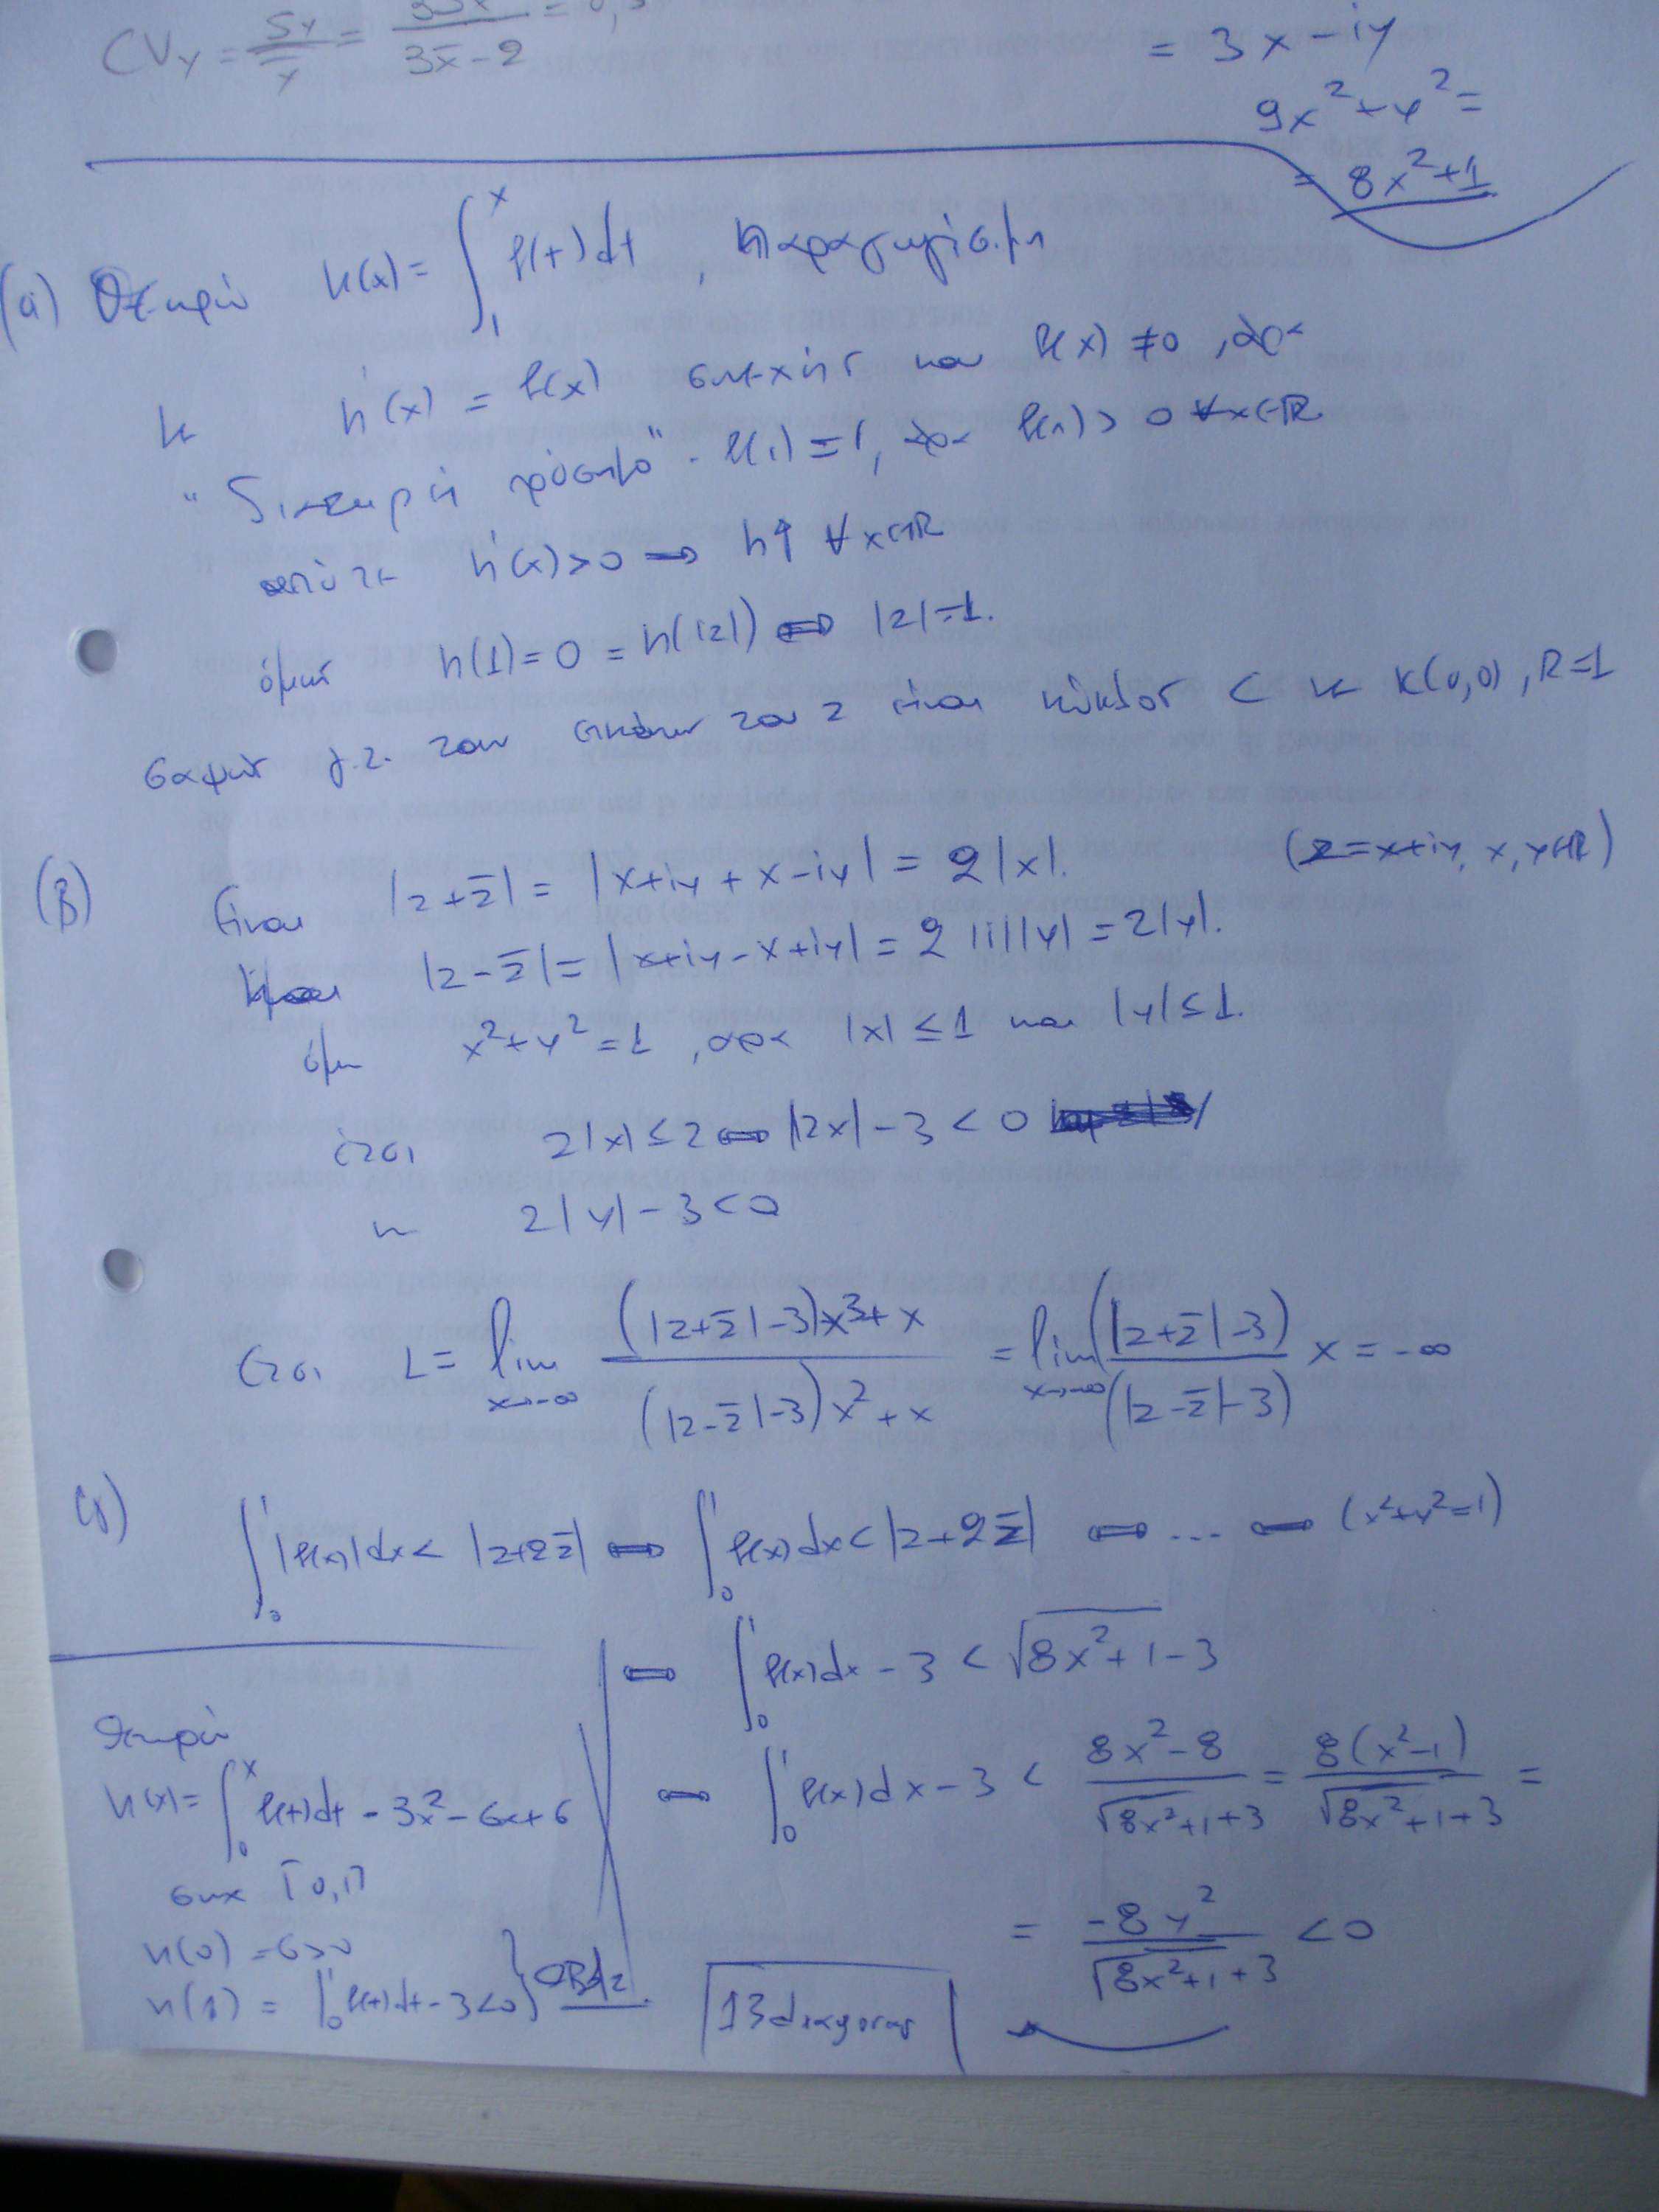 CV_y = s_y/ȳ = 3s_x/(3x̄-2) = 0,
= 3x-iy
9x²+y²=
= 8x²+1
(α) Θεωρώ h(x)= ∫₁ˣ f(t)dt, παραγωγίσιμη
με h'(x) = f(x) συνεχής και f(x) ≠0, άρα
"διατηρεί πρόσημο". f(1)=1, άρα f(x)>0 ∀x∈ℝ
οπότε h'(x)>0 ⇒ h↑ ∀x∈ℝ
όμως h(1)=0=h(|z|) ⇔ |z|=1.
σαφώς γ.τ. των εικόνων του z είναι κύκλος C με K(0,0), R=1
(β) Είναι |z+z̄| = |x+iy+x-iy| = 2|x|. (z=x+iy, x,y∈ℝ)
|z-z̄|= |x+iy-x+iy| = 2|i||y| = 2|y|.
όμως x²+y²=1, άρα |x|≤1 και |y|≤1.
έτσι 2|x|≤2 ⇔ |2x|-3<0
2|y|-3<0
έτσι L= lim_{x→-∞} ((|z+z̄|-3)x³+x)/((|z-z̄|-3)x²+x) = lim_{x→-∞} (|z+z̄|-3)/(|z-z̄|-3) x = -∞
(γ) ∫₀¹ |f(x)|dx < |z+2z̄| ⇔ ∫₀¹ f(x)dx < |z+2z̄| ⇔ ... ⇔ (x²+y²=1)
⇔ ∫₀¹ f(x)dx - 3 < √(8x²+1) - 3
⇔ ∫₀¹ f(x)dx - 3 < (8x²-8)/(√(8x²+1)+3) = 8(x²-1)/(√(8x²+1)+3) =
= -8y²/(√(8x²+1)+3) <0
Θεωρώ
h(x)= ∫₀ˣ f(t)dt - 3x²-6x+6
συνχ [0,1]
h(0)=6>0
h(1) = ∫₀¹ f(t)dt-3<0 } ΘBolz.
13diagoras